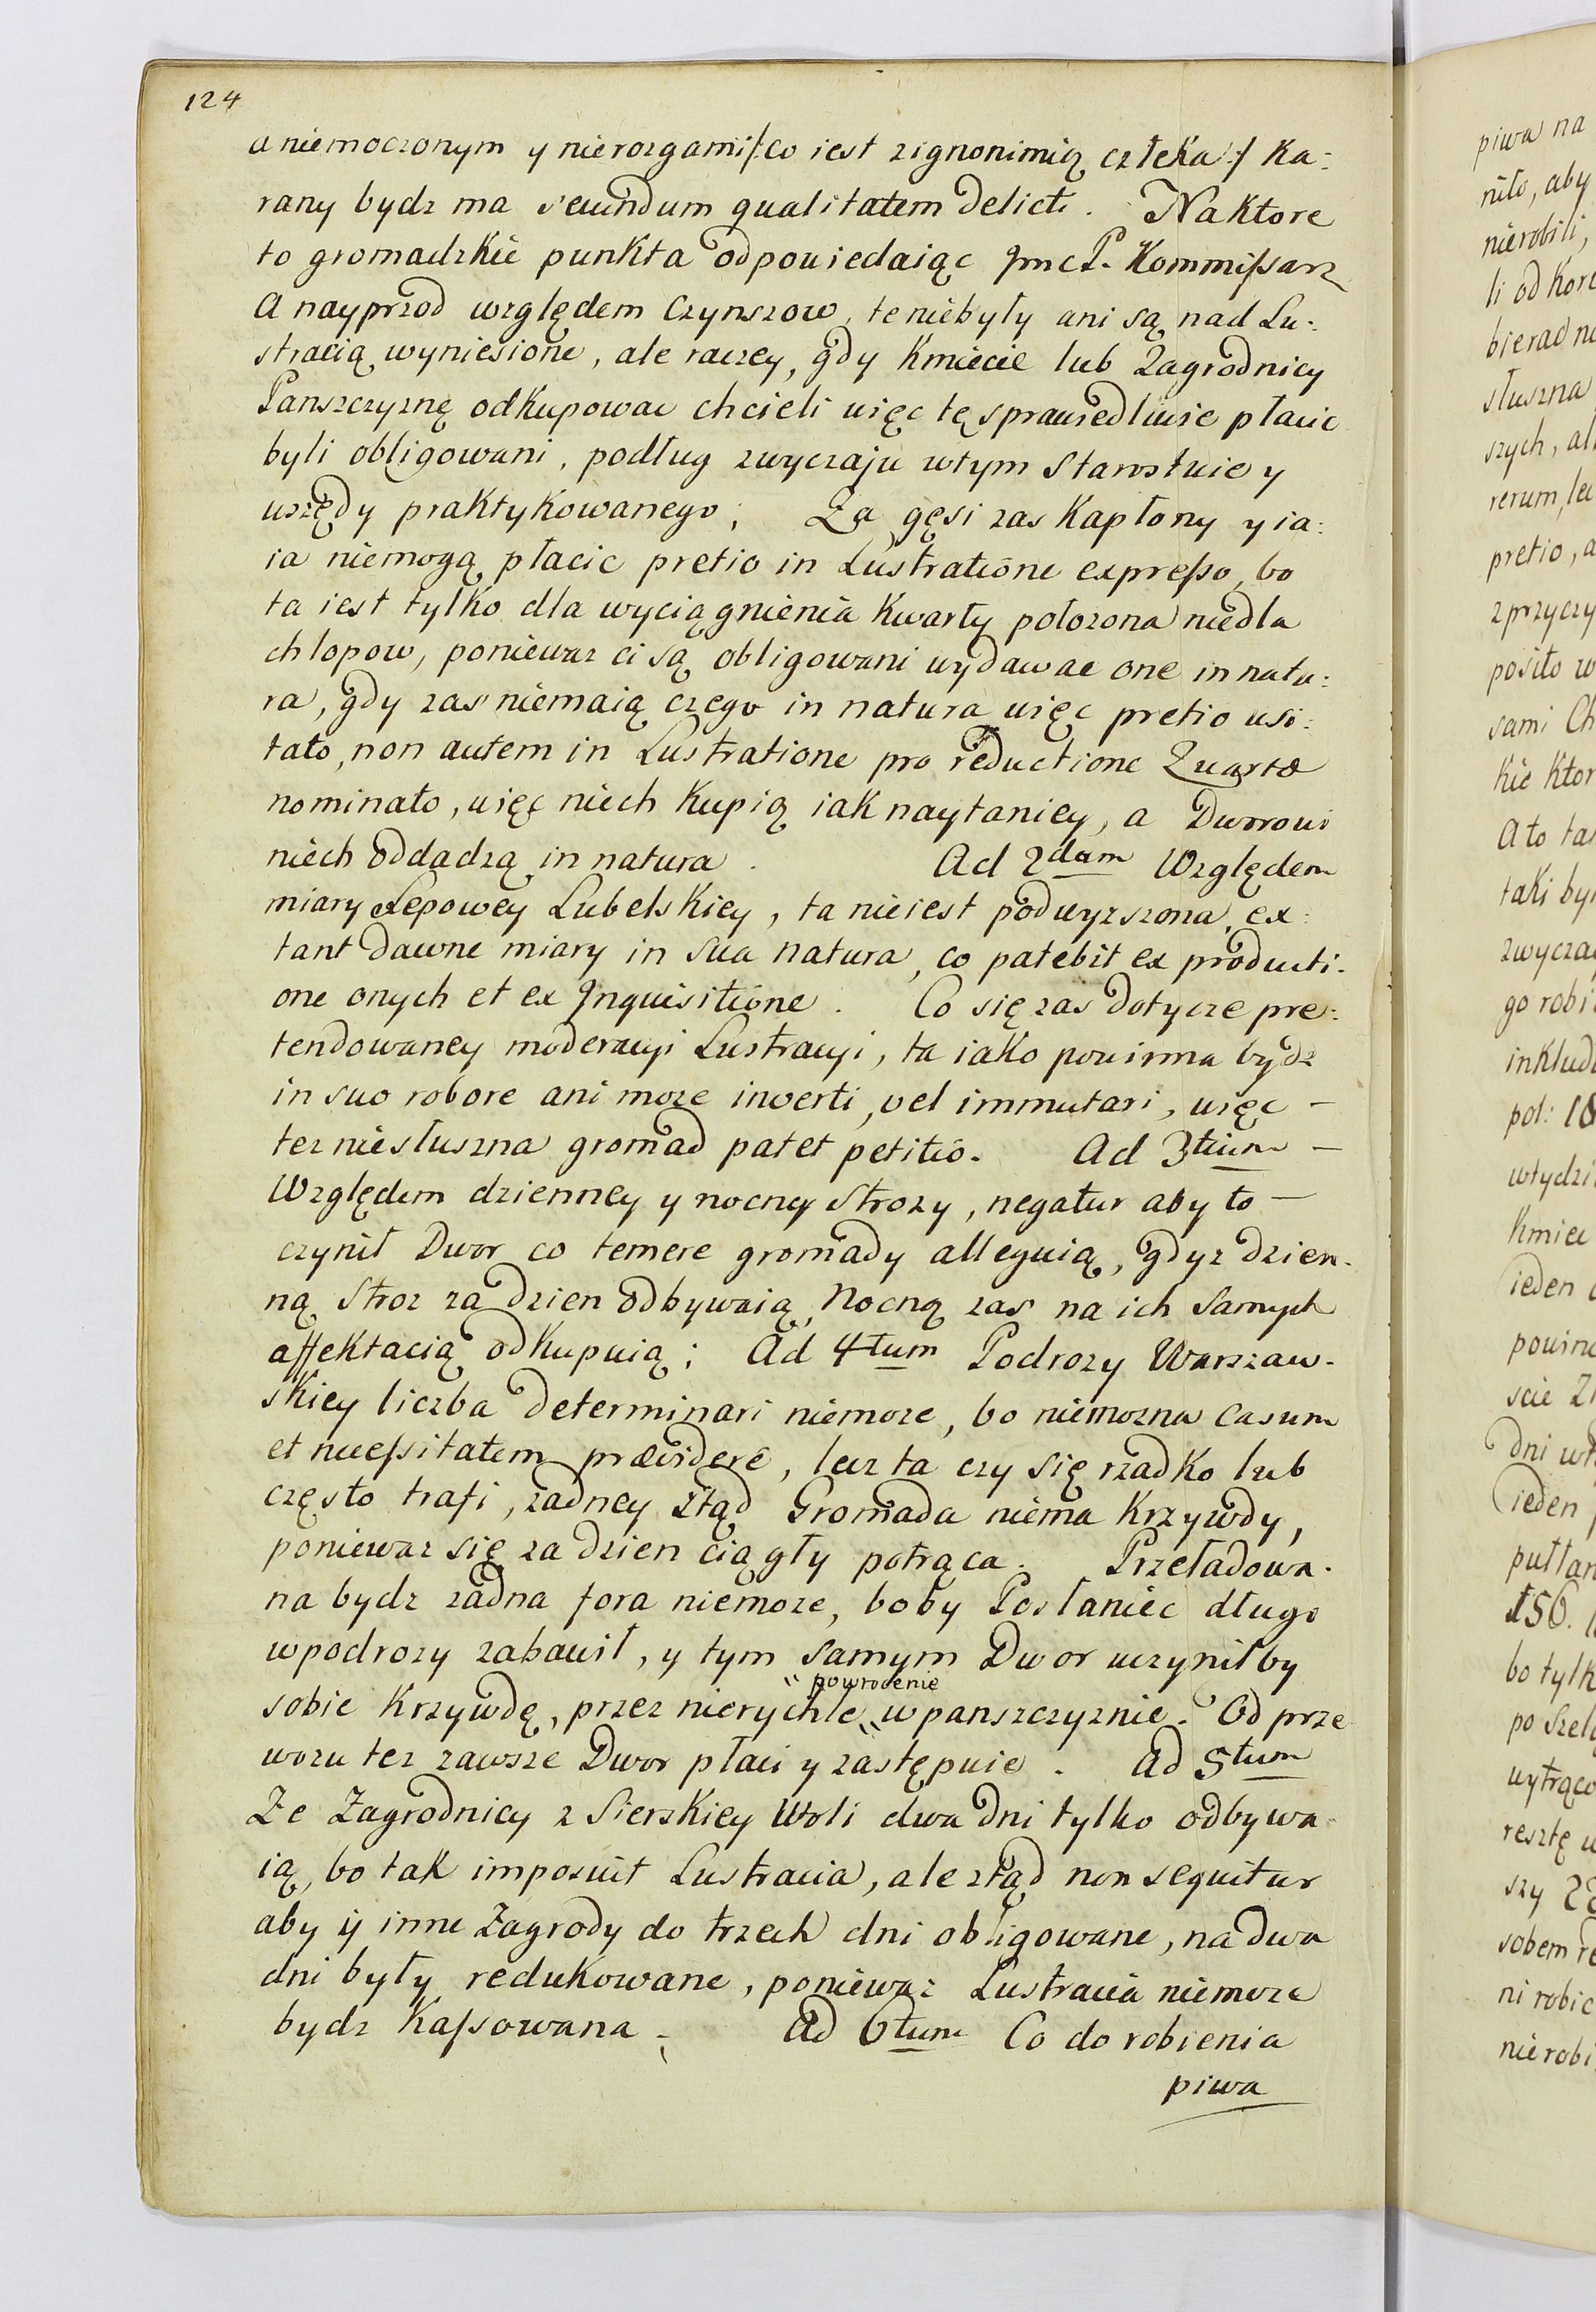 124
a niemoczonym y nierozgami /:co iest zignonimią człeka:/ Ka:
rany bydz ma secundum qualitatem delicti. Naktore
to gromadzkie punkta odpowiedaiąc Jmc P. Kommißarz
A nayprzod względem Czynszow, te niebyły ani są nad Lu:
stracią wyniesione, ale raczey, gdy Kmiecie lub Zagrodnicy
Panszczyznę odkupowac chcieli więc tę sprawiedliwie płacic
byli obligowani, podług zwyczaju wtym Starostwie y
wszędy praktykowanego; Za gęsi zas Kapłony y ia:
ia niemogą płacic pretio in Lustratione expreßo, bo
ta iest tylko dla wyciągnienia Kwarty położona niedla
chlopow, poniewaz ci są obligowani wydawac one in natu:
ra, gdy zas niemaią czego in natura więc pretio usi:
tato, non autem in Lustratione pro reductione Quartæ
nominato, więc niech Kupią iak naytaniey, a Dworowi
niech oddadzą in natura. Ad 2dam Względem
miary Lepowey Lubelskiey, ta nieiest podwyzszona, ex:
tant dawne miary in sua natura, co patebit ex producti:
one onych et ex Inquisitione. Co się zas dotycze pre:
tendowaney moderacyi Lustracyi, ta iako powinna bydz
in suo robore ani moze inverti, vel immutari, więc –
tez niesłuszna gromad patet petitio. Ad 3tium –
Względem dzienney y nocney strozy, negatur aby to –
czynił Dwor co temere gromady alleguią, gdyz dzien-
ną stroz za dzien odbywaią, Nocną zas na ich samych
affektacią odkupuią; Ad 4tum Podrozy Warszaw-
skiey liczba determinari niemoze, bo niemozna Casum
et neceßitatem prævidere, lecz ta czy się rzadko lub
często trafi, zadney ztąd Gromada niema Krzywdy,
poniewaz się za dzien ciągły potrąca. Przeładowa-
na bydz zadna fora niemoze, boby Posłaniec długo
wpodrozy zabawił, y tym samym Dwor uczyniłby
sobie Krzywdę, przez nierychłe powrocenie wpanszczyznie. Od prze
wozu tez zawsze Dwor płaci y zastępuie. Ad 5tum
Ze Zagrodnicy z Sierskiey Woli dwa dni tylko odbywa-
ią, bo tak imposuit Lustracia, ale ztąd non sequitur
aby y inne Zagrody do trzech dni obligowane, na dwa
dni były redukowane, poniewaz Lustracia niemoze
bydz Kaßowana. Ad 6tum Co do robienia
piwa
piwa na
niło, aby
nierobili,
li od Kore
bierad na
słuszna
szych, al
rerum, le
pretio, a
zprzyczy
posito w
sami Ch
kie Ktor
A to ta
taki by
zwycza
go robi
inklud
poł: 18
wtydzi
Kmiec
ieden
powin
scie
dni wt
ieden
pułtar
156.
bo tylk
po szel
wytrąco
resztę w
szy
sobem re
ni robic
nie robi